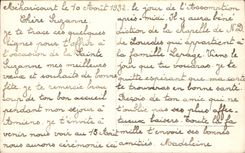 Méharicourt le 10 Août 1932.
Chère Suzanne,
Je te trace ces quelques
lignes pour t'offrir à
l'occasion de la Sainte
Suzanne mes meilleurs
vœux et souhaits de bonne
fête. Je te remercie beau
coup de ton bon accueil
pendant mon séjour à
Amiens. Je t'invite à
venir nous voir au 15 Août
nous aurons cérémonie
le jour de l'Assomption
après-midi. Il y aura béné
diction de la Chapelle de N.D.
de Lourdes qui appartient à
la famille
jour que tu voudras. Je te
quitte espérant que ma carte
te trouvera en bonne santé.
Reçois de ton amie qui ne
t'oublie pas ses plus affec
tueux baisers. Toute la fa
mille t'envoie ses bonnes
amitiés. Madeleine